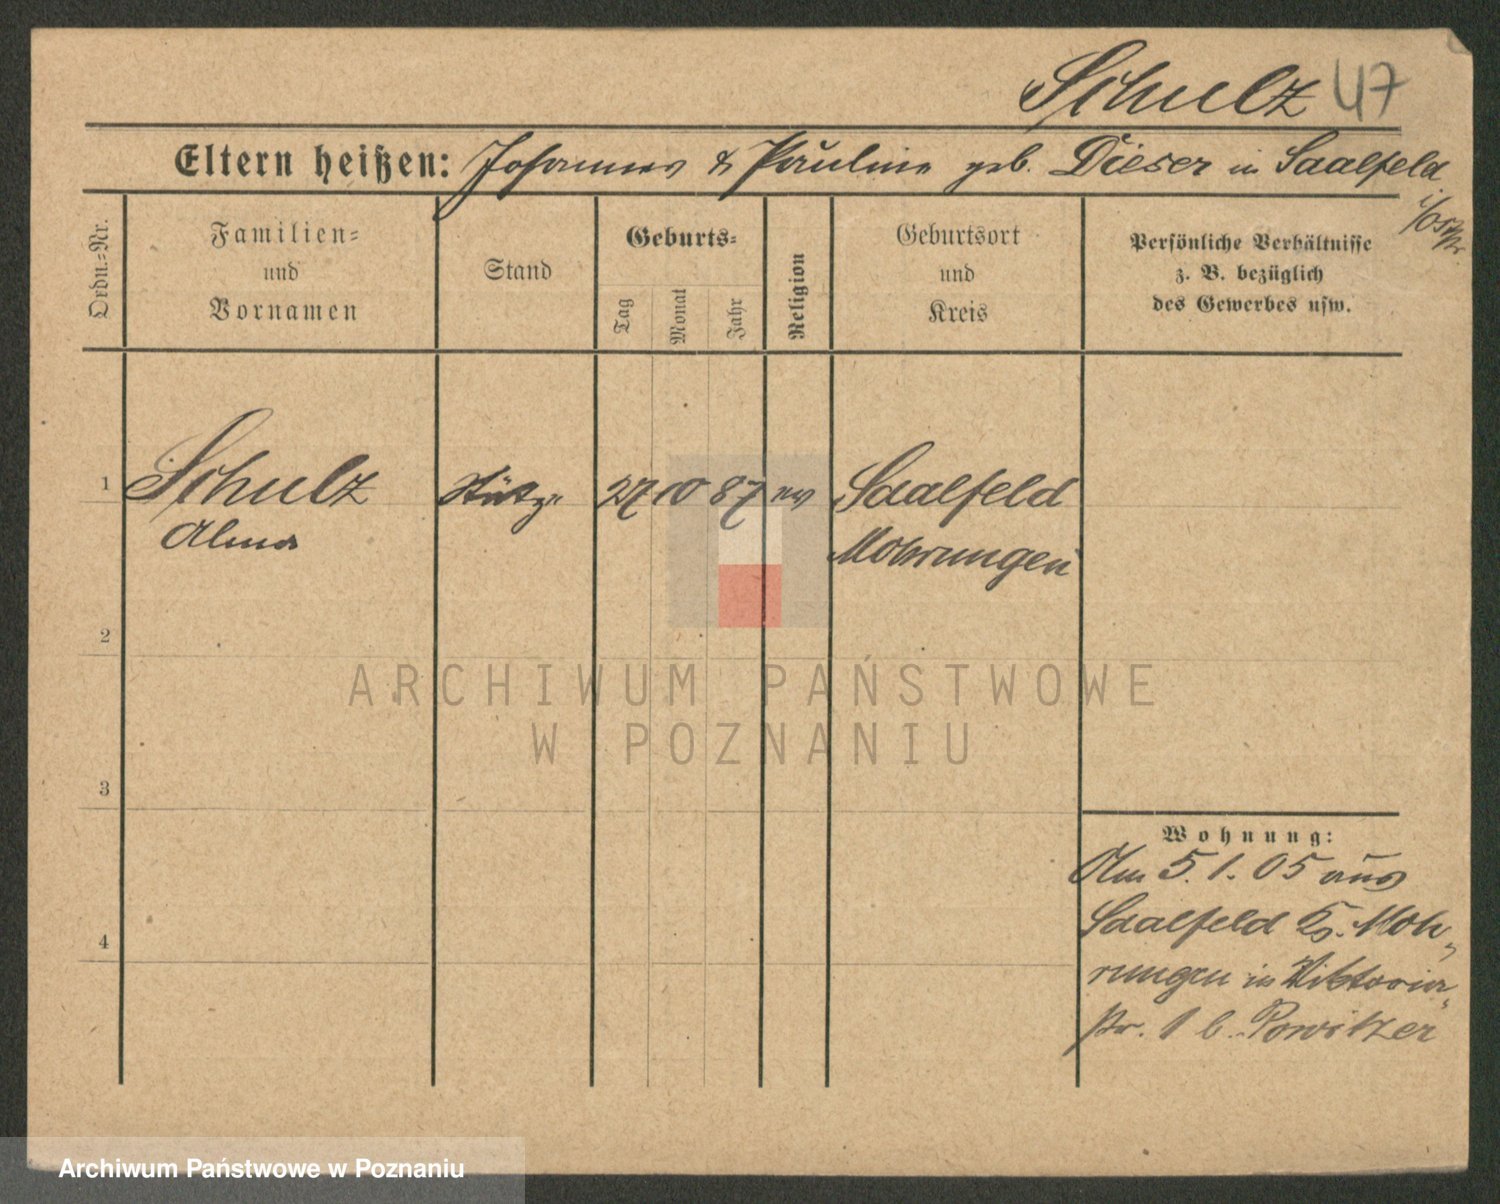 Schulz 47
Eltern heißen: Johannes & Pauline geb. Dieser in Saalfeld
i/Ostpr.
Ordn.-Nr.
Familien-
und
Vornamen
Stand
Geburts-
Tag
Monat
Jahr
Religion
Geburtsort
und
Kreis
Persönliche Verhältnisse
z. B. bezüglich
des Gewerbes usw.
1 Schulz Stütze 27 10 87 ev Saalfeld
Alma Mohrungen
2
ARCHIWUM PAŃSTWOWE
W POZNANIU
3
Wohnung:
Am 5.1.05 aus
Saalfeld Ks. Moh-
4
rungen in Viktoria-
str. 1 b. Powitzer
Archiwum Państwowe w Poznaniu